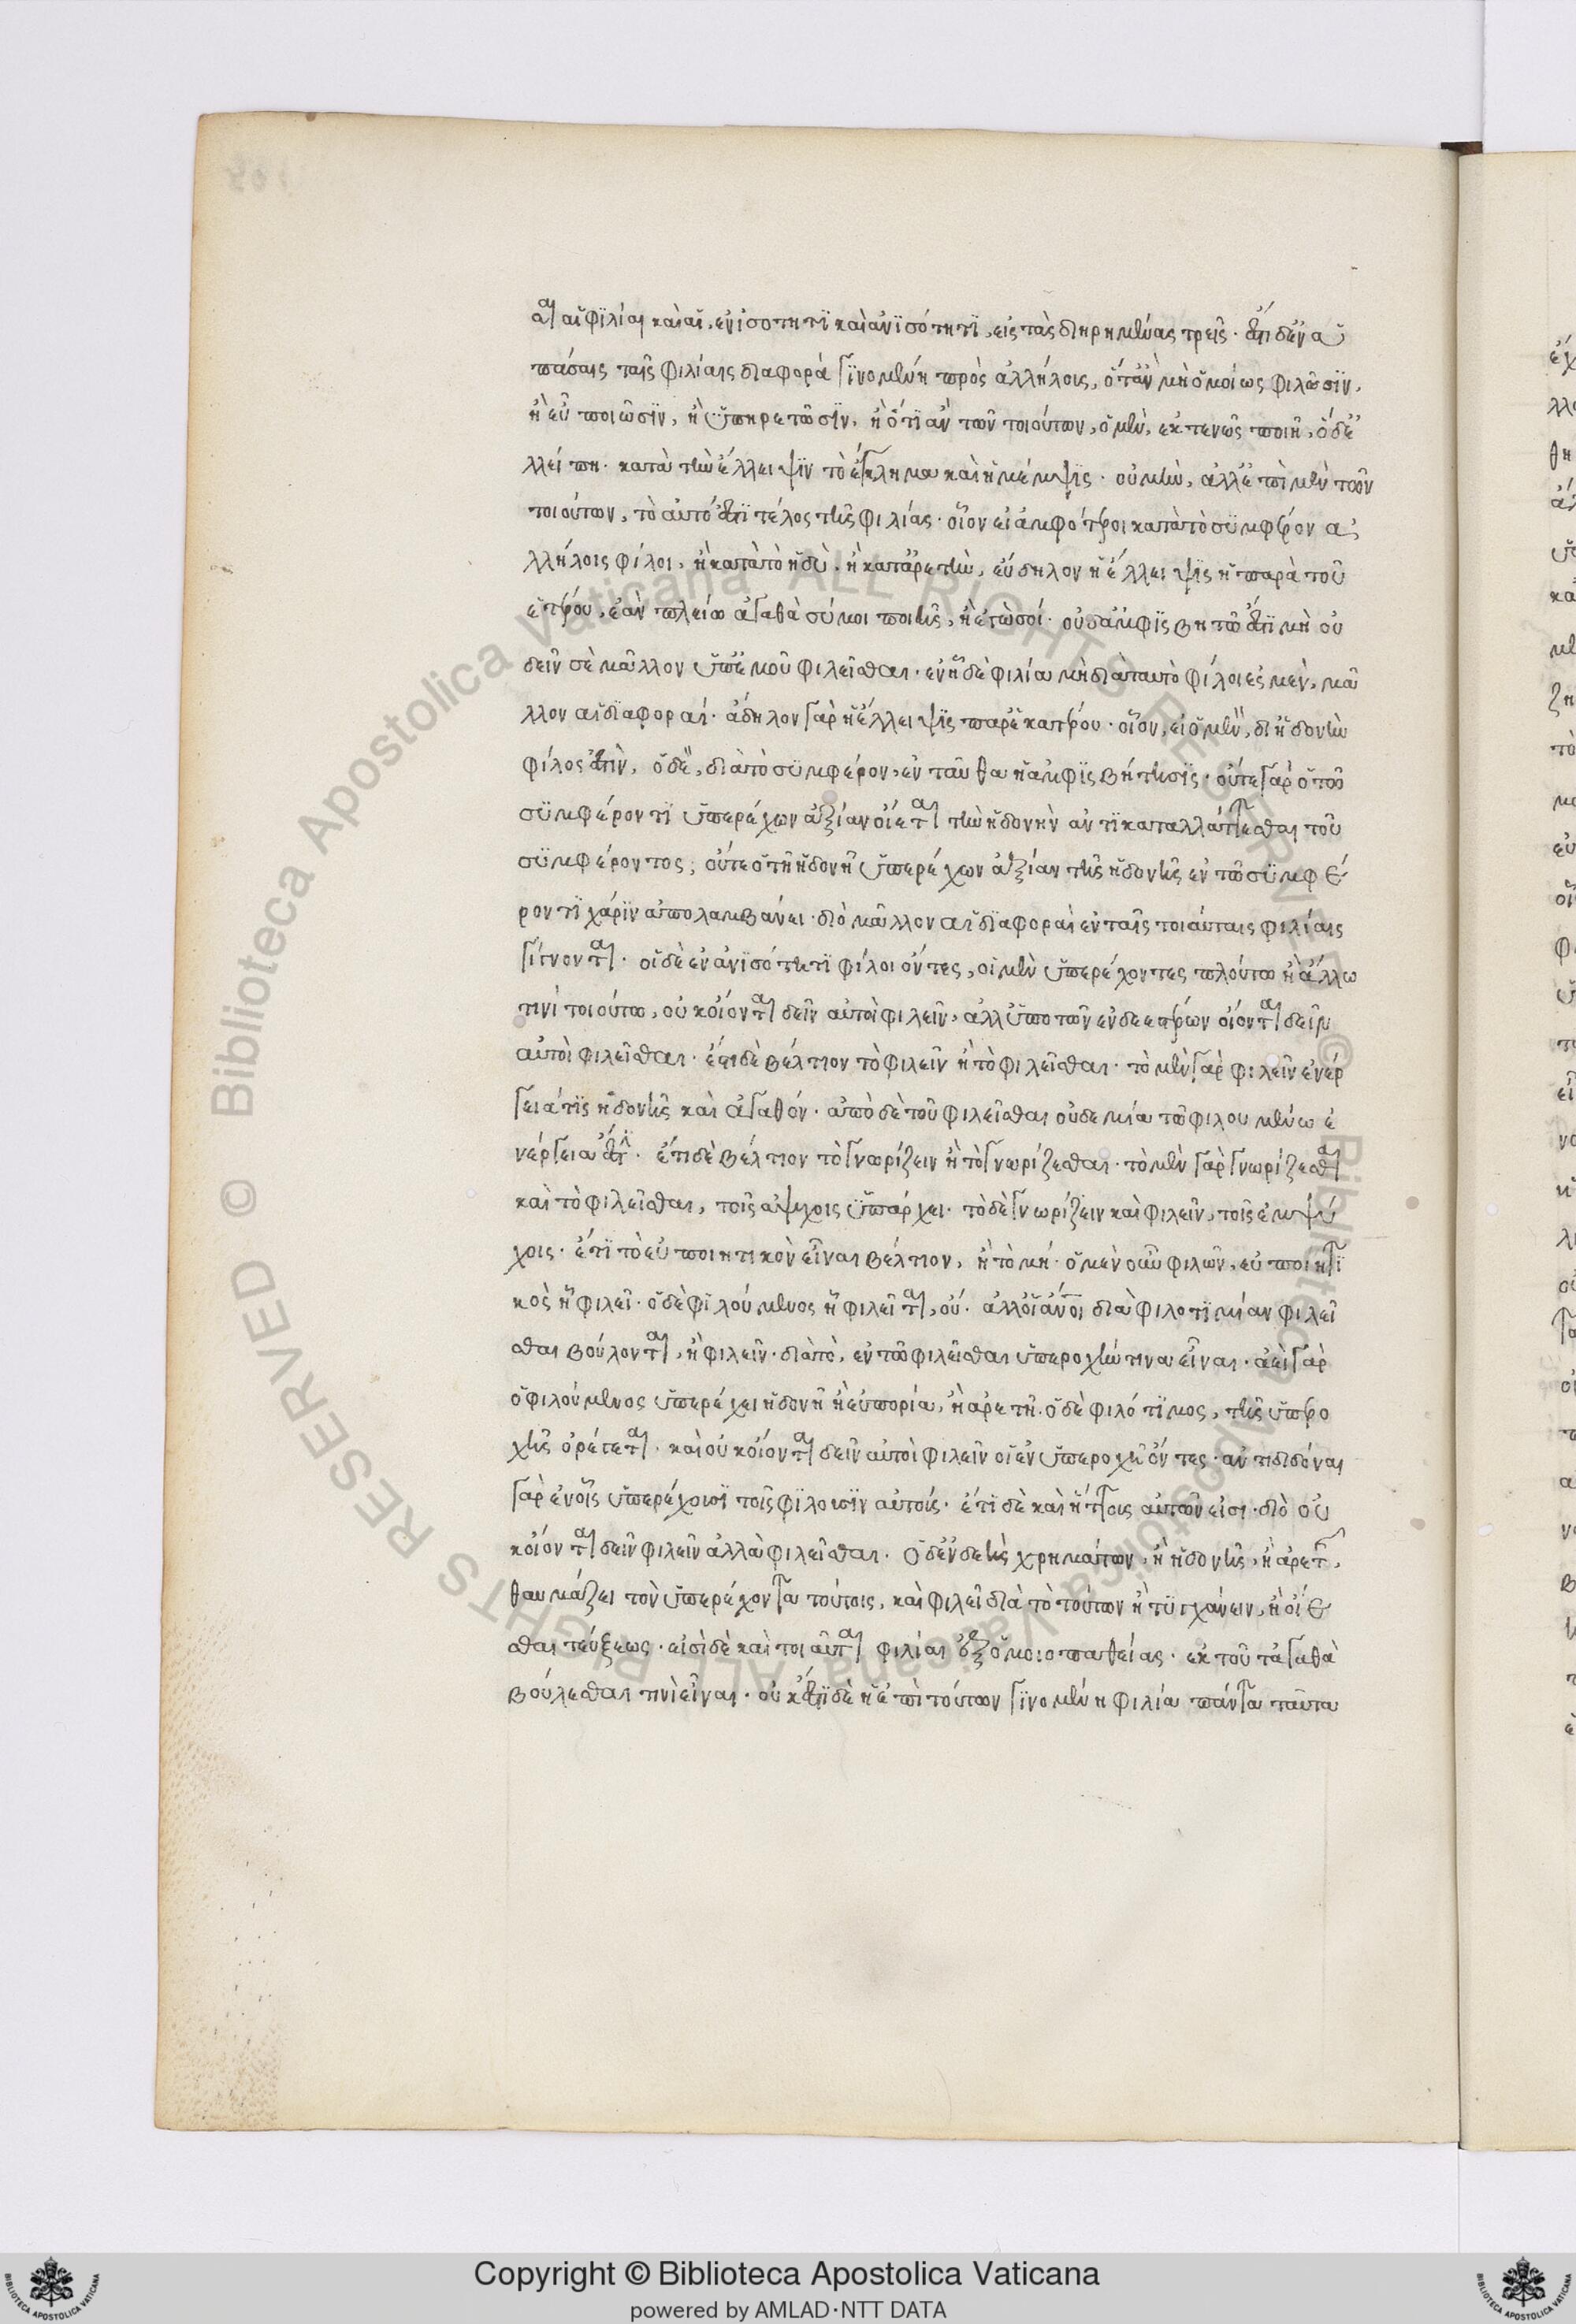 αι αἱ φιλίαι καὶ αἱ, ἐν ἰσότητι καὶ ἀνισότητι, εἰς τὰς διῃρημένας τρεῖς. ἔστι δ' ἐν ἁ
πάσαις ταῖς φιλίαις διαφορὰ γινομένη πρὸς ἀλλήλοις, ὅταν μὴ ὁμοίως φιλῶσιν,
ἢ εὖ ποιῶσιν, ἢ ὑπηρετῶσιν, ἢ ὅτι ἂν τῶν τοιούτων, ὁ μὲν, ἐκτενῶς ποιῇ, ὁ δ' ἐ
λλείπῃ. κατὰ τὴν ἔλλειψιν τὸ ἔγκλημα καὶ ἡ μέμψις. οὐ μὴν, ἀλλ' ἐπὶ μὲν τῶν
τοιούτων, τὸ αὐτό ἐστι τέλος τῆς φιλίας. οἷον εἰ ἀμφότεροι κατὰ τὸ συμφέρον ἀ
λλήλοις φίλοι, ἢ κατὰ τὸ ἡδὺ. ἢ κατ' ἀρετὴν, εὔδηλον ἡ ἔλλειψις ἡ παρὰ τοῦ
ἑτέρου, ἐὰν πλείω ἀγαθὰ σύ μοι ποιῇς, ἢ ἐγὼ σοί. οὐδ' ἀμφισβητῶ ἔστι μὴ οὐ
δεῖν σὲ μᾶλλον ὑπ' ἐμοῦ φιλεῖσθαι. ἐν ᾗ δὲ φιλίᾳ μὴ διὰ ταυτὸ φίλοι ἐσμὲν, μᾶ
λλον αἱ διαφοραί. ἄδηλον γὰρ ἡ ἔλλειψις παρ' ἑκατέρου. οἷον, εἰ ὁ μὲν, δι' ἡδονὴν
φίλος ἐστὶν, ὁ δὲ, διὰ τὸ συμφέρον, ἐνταῦθα ἡ ἀμφισβήτησις. οὔτε γὰρ ὁ τῷ
συμφέροντι ὑπερέχων ἀξίαν οἴεται τὴν ἡδονὴν ἀντικαταλλάττεσθαι τοῦ
συμφέροντος, οὔτε ὁ τῇ ἡδονῇ ὑπερέχων ἀξίαν τῆς ἡδονῆς ἐν τῷ συμφέ
ροντι χάριν ἀπολαμβάνει. διὸ μᾶλλον αἱ διαφοραὶ ἐν ταῖς τοιαύταις φιλίαις
γίγνονται. οἱ δὲ ἐν ἀνισότητι φίλοι ὄντες, οἱ μὲν ὑπερέχοντες πλούτῳ ἢ ἄλλῳ
τινὶ τοιούτῳ, οὐκ οἴονται δεῖν αὐτοὶ φιλεῖν, ἀλλ' ὑπὸ τῶν ἐνδεεστέρων οἴονται δεῖν
αὐτοὶ φιλεῖσθαι. ἔστι δὲ βέλτιον τὸ φιλεῖν ἢ τὸ φιλεῖσθαι. τὸ μὲν γὰρ φιλεῖν ἐνέρ
γειά τις ἡδονῆς καὶ ἀγαθόν. ἀπὸ δὲ τοῦ φιλεῖσθαι οὐδεμία τῷ φιλουμένῳ ἐ
νέργεια ἐστί. ἔτι δὲ βέλτιον τὸ γνωρίζειν ἢ τὸ γνωρίζεσθαι. τὸ μὲν γὰρ γνωρίζεσθαι
καὶ τὸ φιλεῖσθαι, τοῖς ἀψύχοις ὑπάρχει. τὸ δὲ γνωρίζειν καὶ φιλεῖν, τοῖς ἐμψύ
χοις. ἔτι τὸ εὐποιητικὸν εἶναι βέλτιον, ἢ τὸ μή. ὁ μὲν οὖν φιλῶν, εὐποιητι
κὸς ᾗ φιλεῖ. ὁ δὲ φιλούμενος ᾗ φιλεῖται, οὔ. ἀλλ' οἱ ἄνοι διὰ φιλοτιμίαν φιλεῖ
σθαι βούλονται, ἢ φιλεῖν. διὰ τὸ, ἐν τῷ φιλεῖσθαι ὑπεροχήν τινα εἶναι. ἀεὶ γὰρ
ὁ φιλούμενος ὑπερέχει ἡδονῇ ἢ εὐπορίᾳ, ἢ ἀρετῇ. ὁ δὲ φιλότιμος, τῆς ὑπερο
χῆς ὀρέγεται. καὶ οὐκ οἴονται δεῖν αὐτοὶ φιλεῖν οἱ ἐν ὑπεροχῇ ὄντες. ἀντιδιδόναι
γὰρ ἐν οἷς ὑπερέχουσι τοῖς φιλοῦσιν αὐτοίς. ἔτι δὲ καὶ ἥττοις αὐτῶν εἰσι. διὸ οὐ
κ οἴονται δεῖν φιλεῖν ἀλλὰ φιλεῖσθαι. ὁ δ' ἐνδεὴς χρημάτων, ἢ ἡδονῆς, ἢ ἀρετῆς,
θαυμάζει τὸν ὑπερέχοντα τούτοις, καὶ φιλεῖ διὰ τὸ τούτων ἢ τυγχάνειν, ἢ οἴε
σθαι τεύξεως. εἰσὶ δὲ καὶ τοιαῦται φιλίαι ἐξ ὁμοιοπαθείας. ἐκ τοῦ τἀγαθὰ
βούλεσθαι τινὶ εἶναι. οὐκ ἔστι δὲ ἡ ἐπὶ τούτων γινομένη φιλία πάντα ταῦτα
Copyright © Biblioteca Apostolica Vaticana
powered by AMLAD·NTT DATA